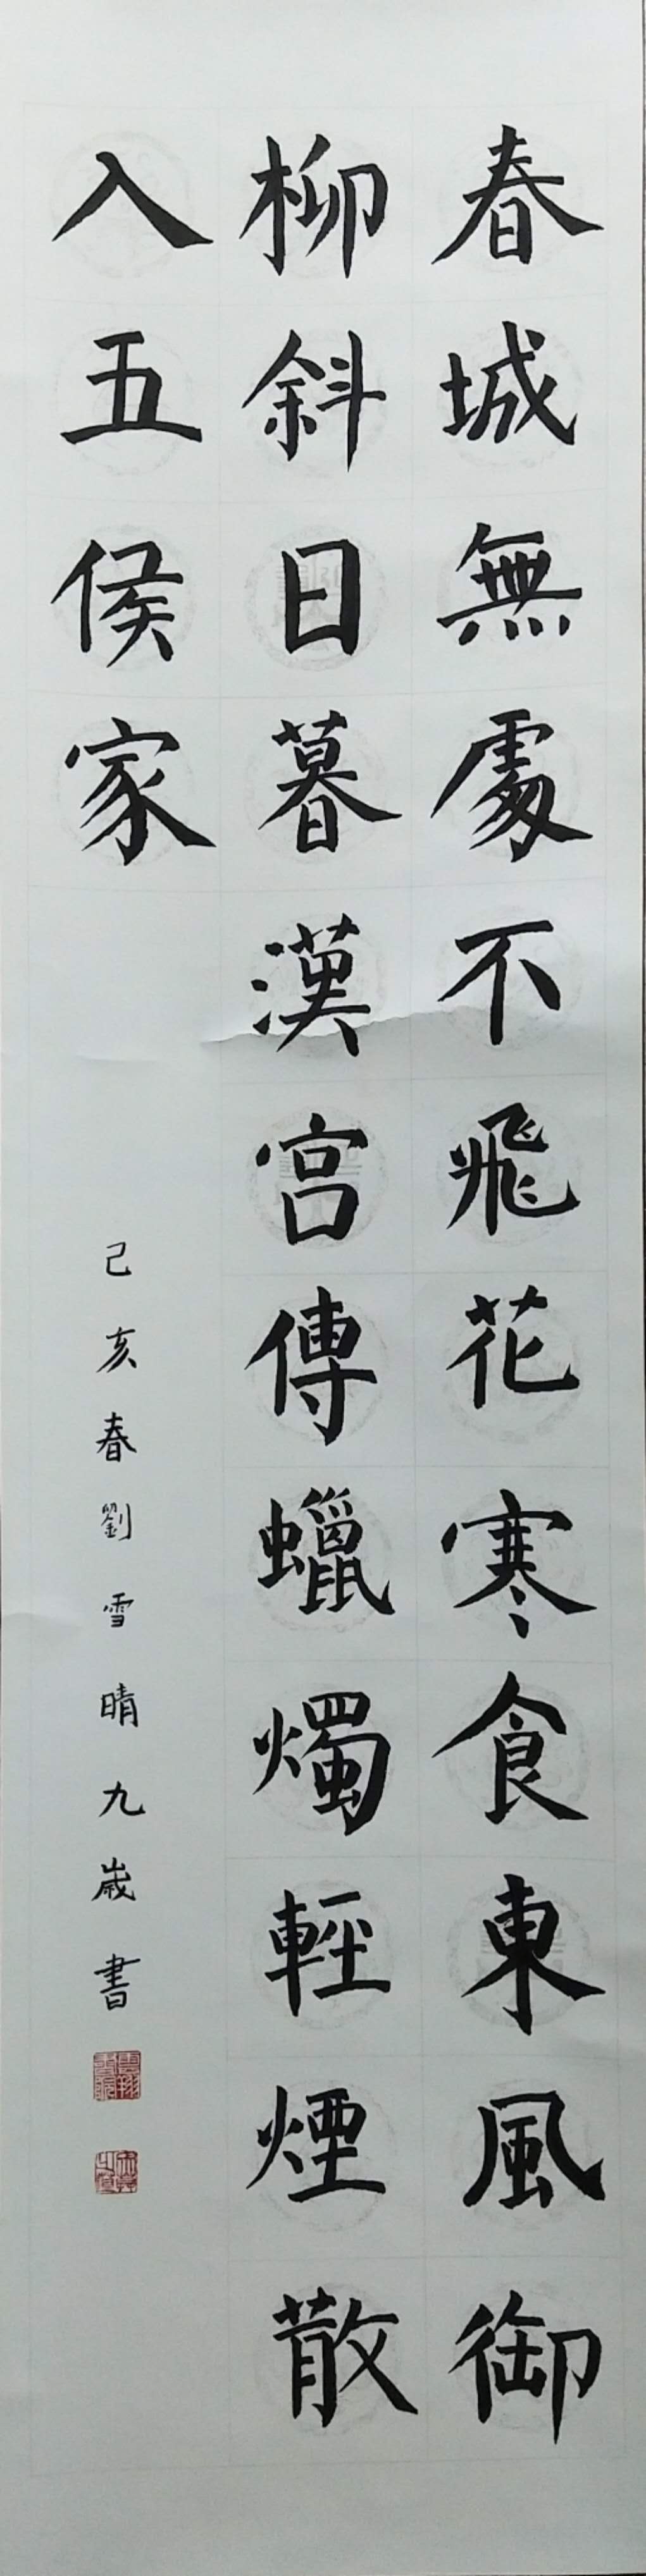 春城無處不飛花寒食東風御
柳斜日暮漢宮傳蠟燭輕煙散
入五侯家
己亥春劉雪晴九歲書